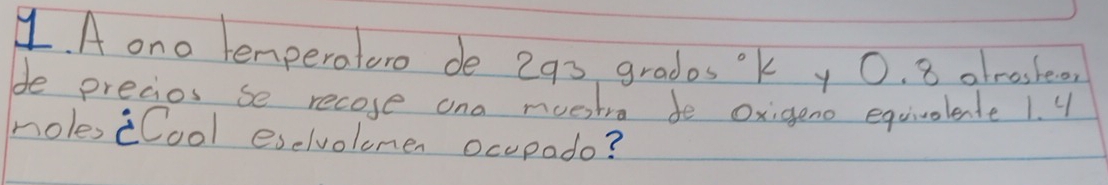 1. A ona temperatura de 293 grados °k y 0.8 atmosferas
de precios se recoje una muestra de oxigeno equivalente 1.4
moles ¿Cual es elvolumen ocupado?